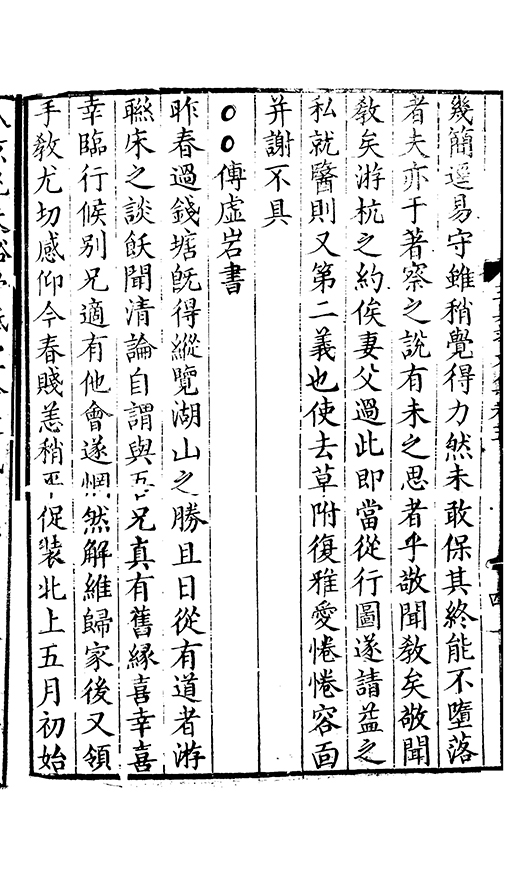 幾簡邁易守雖稍覺得力然未敢保其終能不墮落
者夫亦于著察之說有未之思者乎敬聞教矣敬聞
教矣游杭之約俟妻父過此即當從行圖遂請益之
私就醫則又第二義也使去草附復雅愛惓惓容面
并謝不具
○○傅虛岩書
昨春過錢塘旣得縱覽湖山之勝且日從有道者游
聮床之談飫聞清論自謂與吾兄真有舊緣喜幸喜
幸臨行候別兄適有他會遂惘然解維歸家後又領
手教尤切感仰今春賤恙稍平促裝北上五月初始